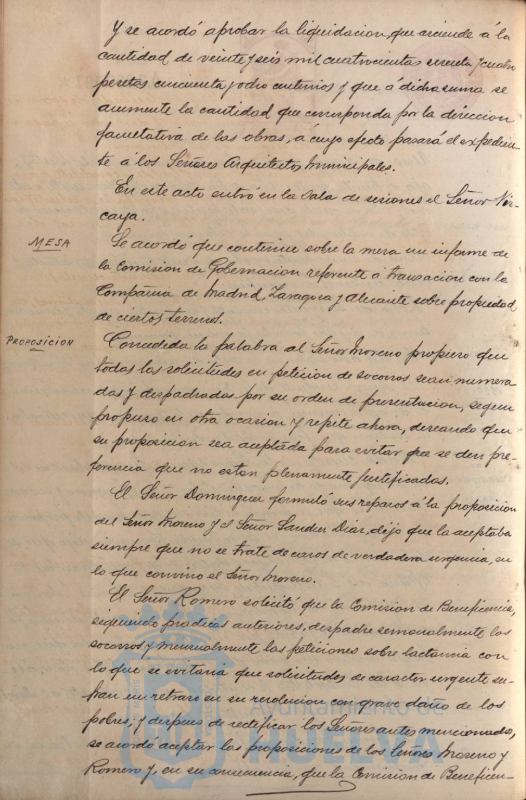 Y se acordó aprobar la liquidacion, que asciende á la
cantidad de veinte y seis mil cuatrocientas sesenta y cuatro
pesetas cincuenta y ocho centimos y que á dicha suma se
aumente la cantidad que corresponda por la direccion
facultativa de las obras, á cuyo efecto pasará el expedien-
te á los Señores Arquitectos municipales.
En este acto entró en la Sala de sesiones el Señor Viz-
caya.
MESA
Se acordó que continue sobre la mesa un informe de
la Comision de Gobernacion referente á transacion con la
Compañia de Madrid, Zaragoza y Alicante sobre propiedad
de ciertos terrenos.
PROPOSICION
Concedida la palabra al Señor Moreno propuso que
todas las solicitudes en peticion de socorros sean numera-
das y despachadas por su orden de presentacion, segun
propuso en otra ocasion y repite ahora, deseando que
su proposicion sea aceptada para evitar que se den pre-
ferencia que no estan plenamente justificadas.
El Señor Dominguez formuló sus reparos á la proposicion
del Señor Moreno y el Señor Sanchez Diaz, dijo que la aceptaba
siempre que no se trate de casos de verdadera urgencia, en
lo que convino el Señor Moreno.
El Señor Romero solicitó que la Comision de Beneficencia,
siguiendo practicas anteriores, despache semanalmente los
socorros y mensualmente las peticiones sobre lactancia con
lo que se evitaria que solicitudes de caracter urgente su-
fran un retraso en su resolucion con grave daño de los
pobres; y despues de rectificar los Señores antes mencionados,
se acordó aceptar las proposiciones de los Señores Moreno y
Romero y, en su consecuencia, que la Comision de Beneficen-
Ayuntamiento de
HUELVA